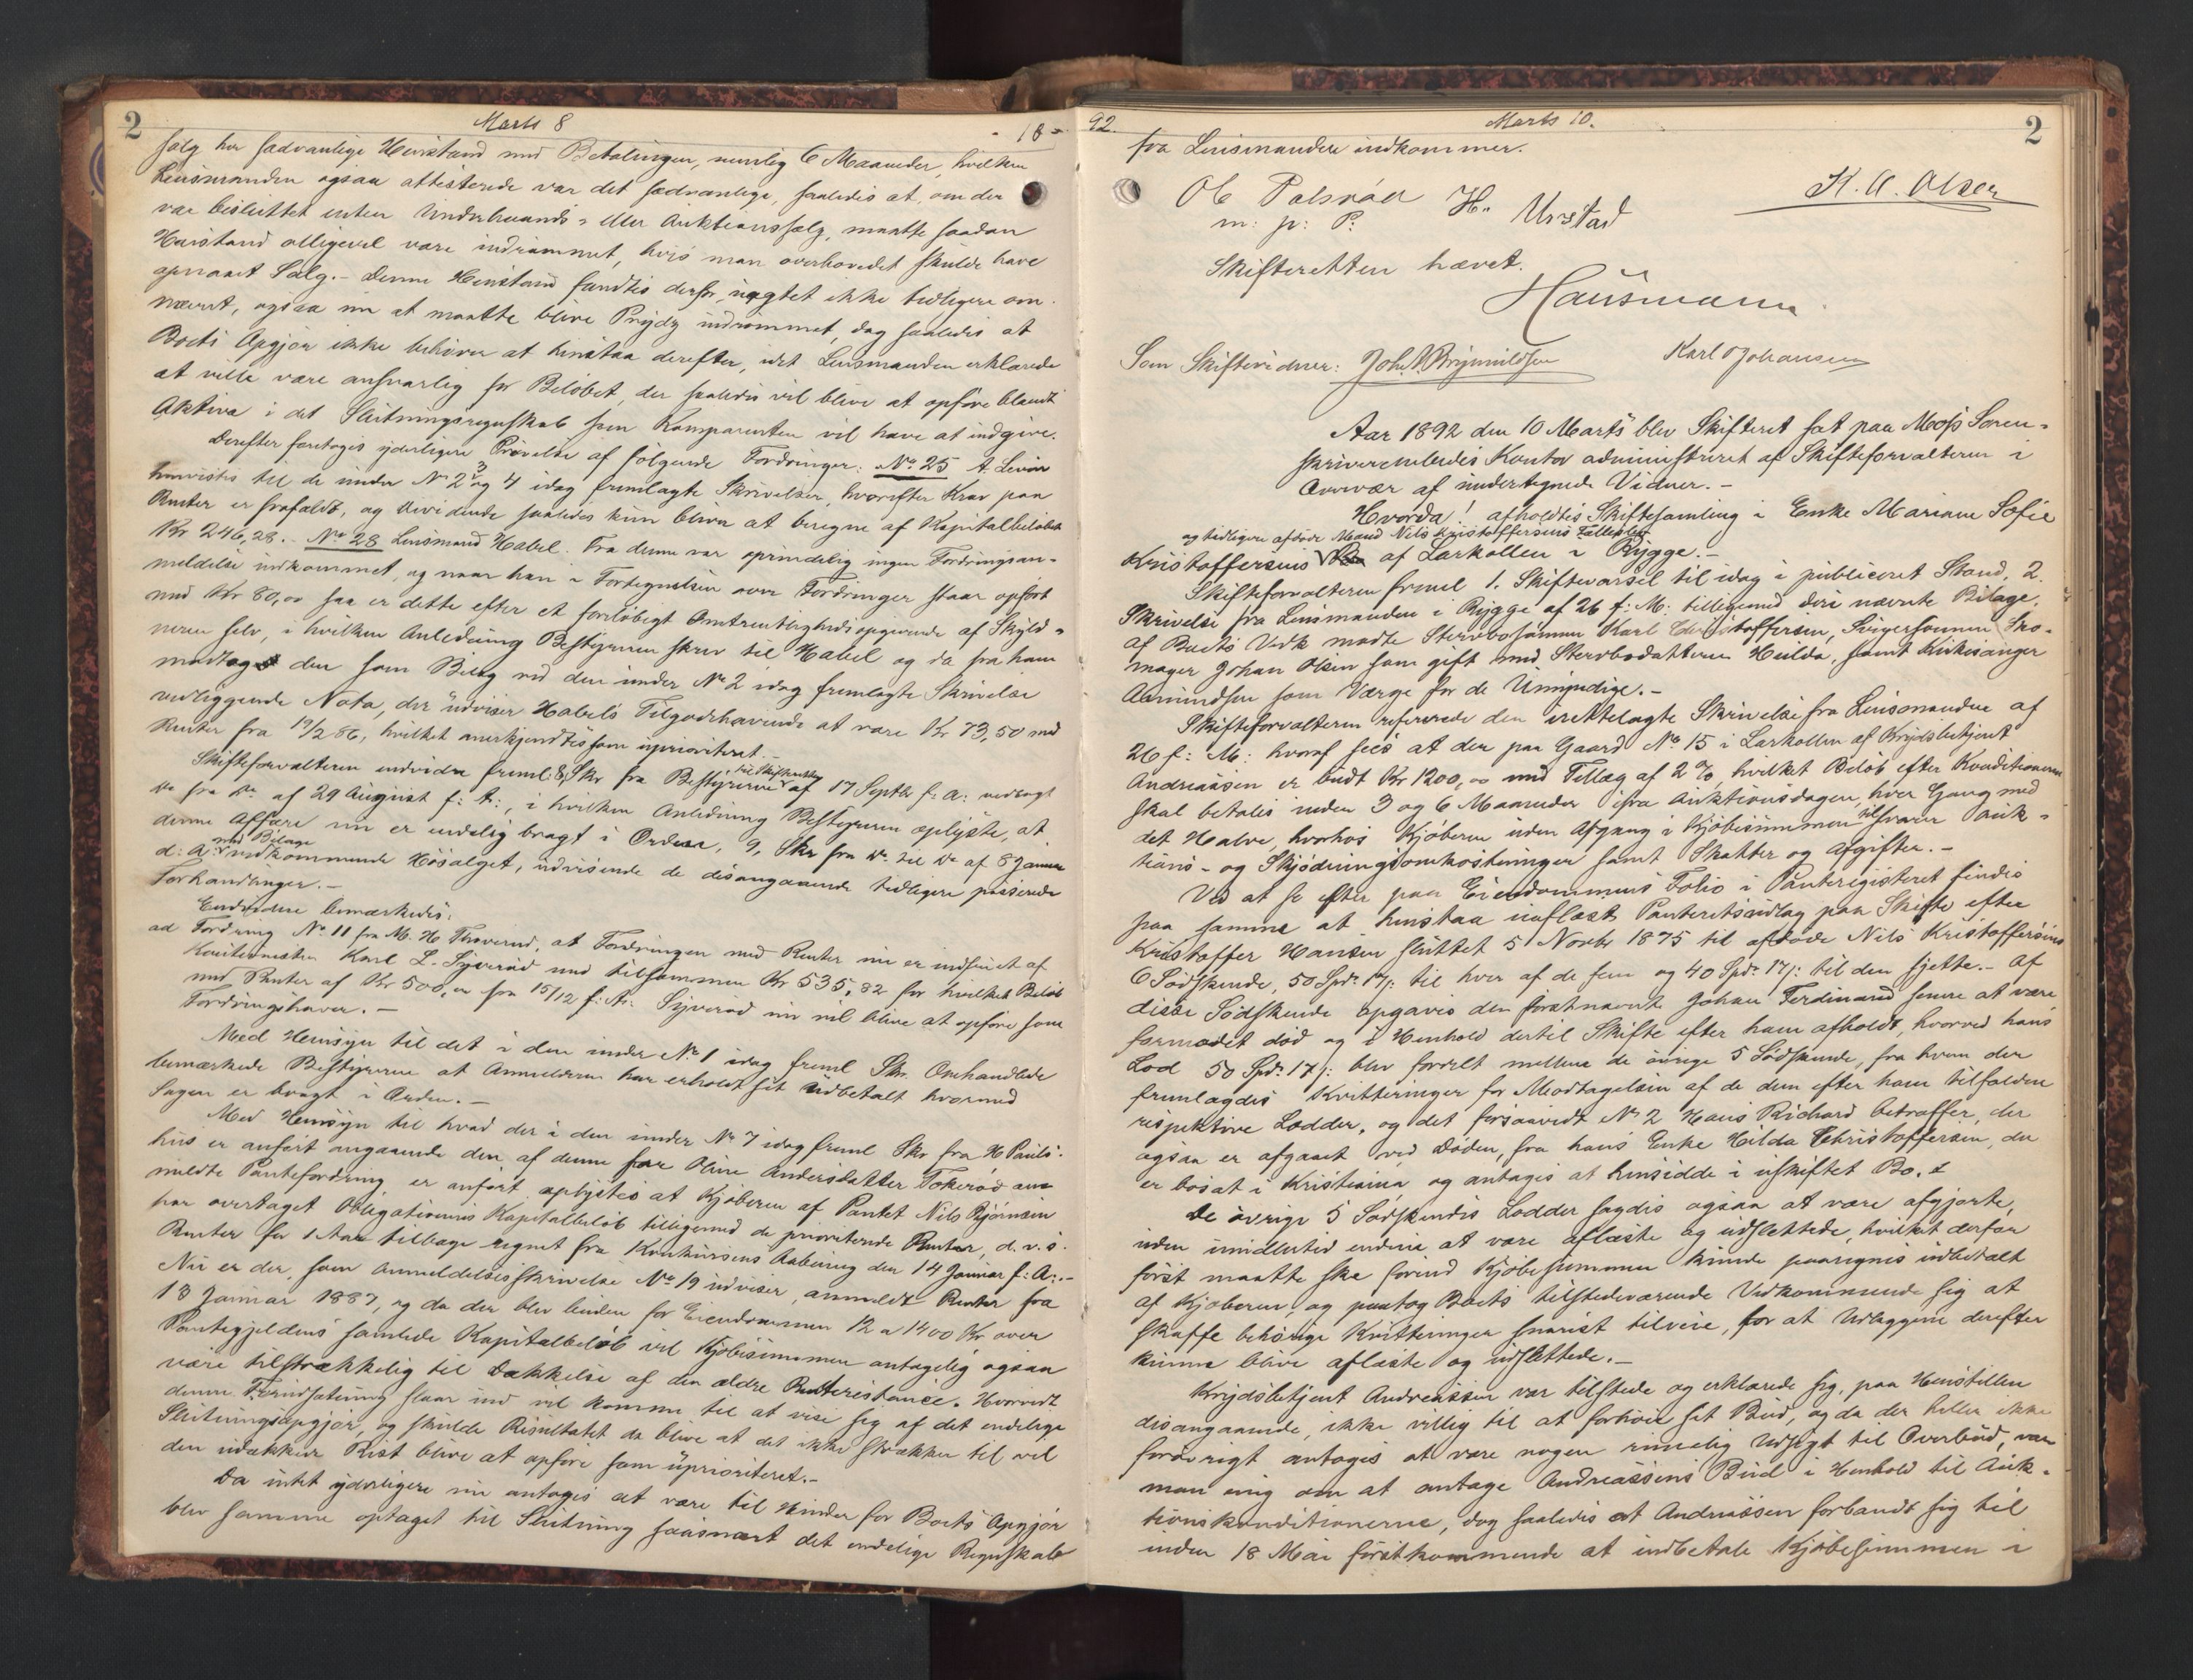 2
Marts 8
18=
Salg har sædvanlige Henstand med Betalingen, nemlig 6 Maaneder, hvilken
Lensmanden ogsaa attesterede var det sædvanlige, saaledes at, om der
var besluttet enten Underhaands- eller Auktionssalg, maatte saadan
Henstand alligevel være indrømmet, hvis man overhovedet skulde have
opnaaet Salg.- Denne Henstand fandtes derfor, uagtet ikke tidligere om-
nævnt, ogsaa nu at maatte blive Prydz indrømmet, dog saaledes at
Boets Opgjør ikke behøver at henstaa derefter, idet Lensmanden erklærede
at ville være ansvarlig for Beløbet, der saaledes vil blive at opføre blandt
Aktiva i det Slutningsregnskab som Komparenten vil have at indgive.
Derefter foretoges yderligere Prøvelse af følgende Fordringer: No 25 A. Levin
henvistes til de under No 2, 3 og 4 idag fremlagte Skrivelser, hvorefter Krav paa
Renter er frafaldt, og Dividende saaledes kun bliver at beregne af Kapitalbeløbet
Kr 246,28.- No 28 Lensmand Habel. Fra denne var oprindelig ingen Fordringsan-
meldelse indkommet, og naar han i Fortegnelsen over Fordringer staar opført
med Kr 80,00 saa er dette efter et foreløbigt Omtrentlighedsopgivende af Skyld-
neren selv, i hvilken Anledning Bestyreren skrev til Habel og da fra ham
modtog den som Bilag ved den under No 2 idag fremlagte Skrivelse
vedliggende Nota, der udviser Habels Tilgodehavende at være Kr 73,50 med
Renter fra 19/2 86, hvilket anerkjendtes som uprioriteret.-
Skifteforvalteren endvidere freml: 8, Skr fra Bestyreren til Skifteretten af 17 Septbr f: A: vedlagt
do fra do af 29 August f: A:, i hvilken Anledning Bestyreren oplyste, at
denne Affære nu er endelig bragt i Orden, 9, Skr fra do til do af 8 Januar
d: A: med Bilage vedkommende Høsalget, udvisende de desangaaende tidligere passerede
Forhandlinger.-
Endvidere bemærkedes:
ad Fordring No 11 fra M. H. Thoverud, at Fordringen med Renter nu er indfriet af
Kautionisten Karl L. Syverød med tilsammen Kr 535,82 for hvilket Beløb
med Renter af Kr 500,00 fra 15/12 f: A: Syverød nu vil blive at opføre som
Fordringshaver.-
Med Hensyn til det i den under No 1 idag freml Skr. Omhandlede
bemærkede Bestyreren at Anmelderen har erholdt sit Udbetalt hvormed
Sagen er bragt i Orden.-
Med Hensyn til hvad der i den under No 7 idag freml Skr fra H Pauls-
hus er anført angaaende den af denne for Oline Andersdatter Tokerød an-
meldte Pantefordring er anført oplystes at Kjøberen af Pantet Nils Bjørnsen
har overtaget Obligationens Kapitalbeløb tilligemed de prioriterede Renter, d. v. s.
Renter for 1 Aar tilbage regnet fra Konkursens Aabning den 14 Januar f: A:.-
Nu er der, som Anmeldelsesskrivelse No 19 udviser, anmeldt Renter fra
13 Januar 1887, og da der blev buden for Eiendommen 12 a 1400 Kr over
Pantegjældens samlede Kapitalbeløb vil Kjøbesummen antagelig ogsaa
være tilstrækkelig til Dækkelse af den ældre Renterestance. Hvorvidt
denne Forudsætning slaar ind vil komme til at vise sig af det endelige
Slutningsopgjør, og skulde Resultatet da blive at det ikke strækker til vil
den udækkede Rest blive at opføre som uprioriteret.-
Da intet yderligere nu antoges at være til Hinder for Boets Opgjør
blev samme optaget til Slutning saasnart det endelige Regnskab
92.
Marts 10.
2
fra Lensmanden indkommer.
Ole Palsrød H. Urstad
K. A. Olsen
m: p: P:
Skifteretten hævet.
Hausmann
Som Skiftevidner: Joh. Brynmildsen Karl Johansen
Aar 1892 den 10 Marts blev Skifteret sat paa Moss Soren-
skriverembedes Kontor administreret af Skifteforvalteren i
Overvær af undertegnede Vidner.-
Hvorda! afholdtes Skiftesamling i Enke Mariane Sofie
og tidligere afdøde Mand Nils Kristoffersens Fællesbo
Kristoffersens af Larkollen i Rygge.-
Skifteforvalteren freml 1. Skiftevarsel til idag i publiceret Stand, 2.
Skrivelse fra Lensmanden i Rygge af 26 f: M: tilligemed deri nævnte Bilage.
af Boets Vedk mødte Stervbosønnen Karl Christoffersen, Svigersønnen Sko-
mager Johan Olsen som gift med Stervbodatteren Hulda, samt Kirkesanger
Aamundsen som Værge for de Umyndige.-
Skifteforvalteren refererede den irettelagte Skrivelse fra Lensmanden af
26 f: M: hvoraf sees at der paa Gaard No 15 i Larkollen af Krydsbetjent
Andreassen er budt Kr 1200,00 med Tillæg af 2 %, hvilket Beløb efter Konditionerne
skal betales inden 3 og 6 Maaneder ifra Auktionsdagen, hver Gang med
det Halve, hvorhos Kjøberen uden Afgang i Kjøbesummen tilsvarer Auk-
tions- og Skjødningsomkostninger samt Skatter og Afgifter.-
Ved at se efter paa Eiendommens Folio i Panteregisteret findes
paa samme at henstaa uaflæst Panteretsudlæg paa Skifte efter
Kristoffer Hansen sluttet 5 Novbr 1875 til afdøde Nils Kristoffersens
6 Sødskende, 50 Spd: 17 /: til hver af de fem og 40 Spd: 17 /: til den sjette.- Af
disse Sødskende opgaves den førstnævnte Johan Ferdinand senere at være
formodet død og i Henhold dertil Skifte efter ham afholdt, hvorved hans
Lod 50 Spd: 17 /: blev fordelt mellem de øvrige 5 Sødskende, fra hvem der
fremlagdes Kvitteringer for Modtagelsen af de dem efter ham tilfaldne
respektive Lodder, og det forsaavidt No 2 Hans Richard betræffer, der
ogsaa er afgaaet ved Døden, fra hans Enke Hilda Christoffersen, der
er bosat i Kristiania og antages at hensidde i uskiftet Bo.
De øvrige 5 Sødskendes Lodder sagdes ogsaa at være afgjorte,
uden imidlertid endnu at være aflæste og udslettede, hvilket derfor
først maatte ske forind Kjøbesummen kunde paaregnes udbetalt
af Kjøberen, og paatog Boets tilstedeværende Vedkommende sig at
skaffe behørige Kvitteringer snarest tilveie, for at Udlæggene derefter
kunne blive aflæste og udslettede.-
Krydsbetjent Andreassen var tilstede og erklærede sig, paa Henstillen
desangaaende, ikke villig til at forhøie sit Bud, og da der heller ikke
forøvrigt antoges at være nogen rimelig Udsigt til Overbud, var
man enig om at antage Andreassens Bud i Henhold til Auk-
tionskonditionerne, dog saaledes at Andreassen forbandt sig til
inden 18 Mai førstkommende at indbetale Kjøbesummen i